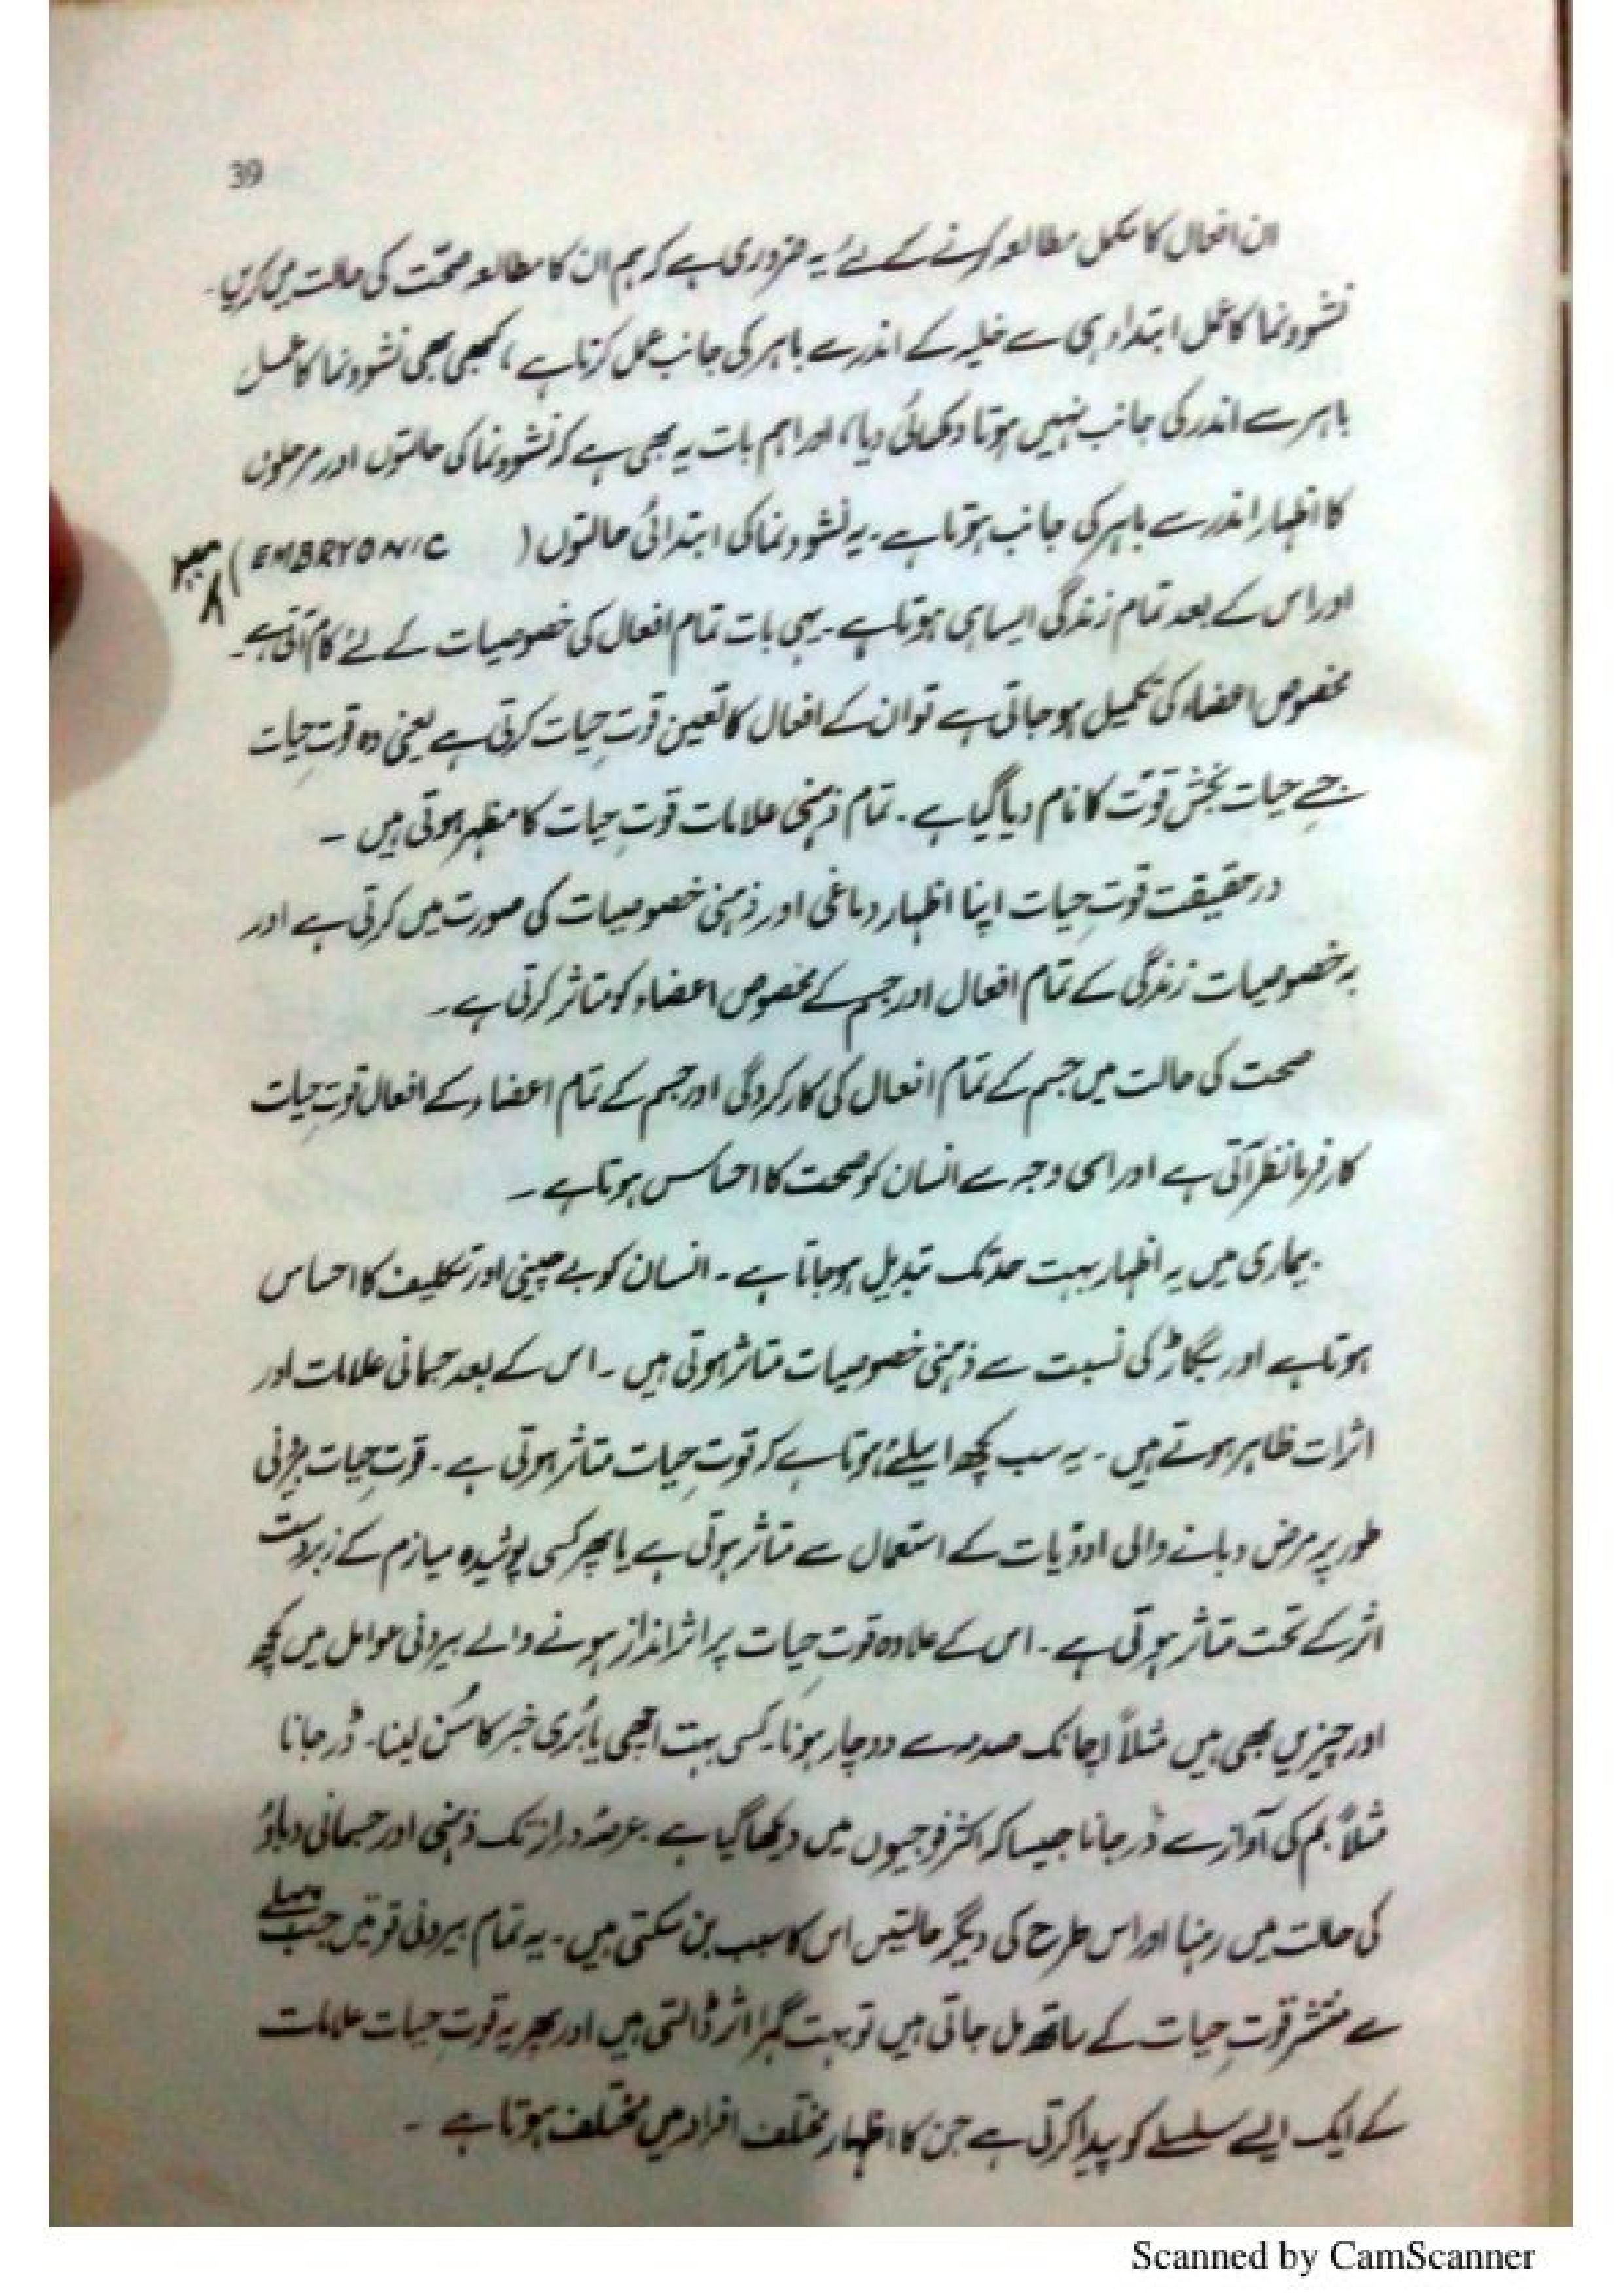 39
ان افعال کا مکمل مطالعہ کرنے کے لئے یہ ضروری ہے کہ ہم ان کا مطالعہ صحت کی حالت میں کریں۔
نشوونما کا عمل ابتداء ہی سے خلیہ کے اندر سے باہر کی جانب عمل کرتا ہے، کبھی بھی نشوونما کا عمل
باہر سے اندر کی جانب نہیں ہوتا دکھائی دیا، اور اہم بات یہ بھی ہے کہ نشوونما کی حالتوں اور مرحلوں
کا اظہار اندر سے باہر کی جانب ہوتا ہے۔ یہ نشوونما کی ابتدائی حالتوں (EMBRYONIC)
اور اس کے بعد تمام زندگی ایسا ہی ہوتا ہے۔ یہی بات تمام افعال کی خصوصیات کے لئے کام آتی ہے۔
مخصوص اعضاء کی تکمیل ہو جاتی ہے تو ان کے افعال کا تعین قوتِ حیات کرتی ہے یعنی وہ قوتِ حیات
جسے حیات بخش قوت کا نام دیا گیا ہے۔ تمام ذہنی علامات قوتِ حیات کا مظہر ہوتی ہیں ۔
در حقیقت قوتِ حیات اپنا اظہار دماغی اور ذہنی خصوصیات کی صورت میں کرتی ہے اور
یہ خصوصیات زندگی کے تمام افعال اور جسم کے مخصوص اعضاء کو متاثر کرتی ہے۔
صحت کی حالت میں جسم کے تمام افعال کی کارکردگی اور جسم کے تمام اعضاء کے افعال قوتِ حیات
کارفرما نظر آتی ہے اور اسی وجہ سے انسان کو صحت کا احساس ہوتا ہے ۔
بیماری میں یہ اظہار بہت حد تک تبدیل ہو جاتا ہے ۔ انسان کو بے چینی اور تکلیف کا احساس
ہوتا ہے اور بگاڑ کی نسبت سے ذہنی خصوصیات متاثر ہوتی ہیں ۔ اس کے بعد جسمانی علامات اور
اثرات ظاہر ہوتے ہیں ۔ یہ سب کچھ اسلئے ہوتا ہے کہ قوتِ حیات متاثر ہوتی ہے ۔ قوتِ حیات بیرونی
طور پر مرض دبانے والی ادویات کے استعمال سے متاثر ہوتی ہے یا پھر کسی پوشیدہ میازم کے زبردست
اثر کے تحت متاثر ہوتی ہے ۔ اس کے علاوہ قوتِ حیات پر اثر انداز ہونے والے بیرونی عوامل میں کچھ
اور چیزیں بھی ہیں مثلاً اچانک صدمہ سے دوچار ہونا۔ کسی بہت اچھی یا بُری خبر کا سُن لینا۔ ڈر جانا
مثلاً بم کی آواز سے ڈر جانا جیسا کہ اکثر فوجیوں میں دیکھا گیا ہے۔ عرصۂ دراز تک ذہنی اور جسمانی دباؤ
کی حالت میں رہنا اور اس طرح کی دیگر حالتیں اس کا سبب بن سکتی ہیں۔ یہ تمام بیرونی قوتیں جب پہلے
سے منتشر قوتِ حیات کے ساتھ مل جاتی ہیں تو بہت گہرا اثر ڈالتی ہیں اور پھر یہ قوتِ حیات علامات
کے ایک ایسے سلسلے کو پیدا کرتی ہے جن کا اظہار مختلف افراد میں مختلف ہوتا ہے ۔
Scanned by CamScanner